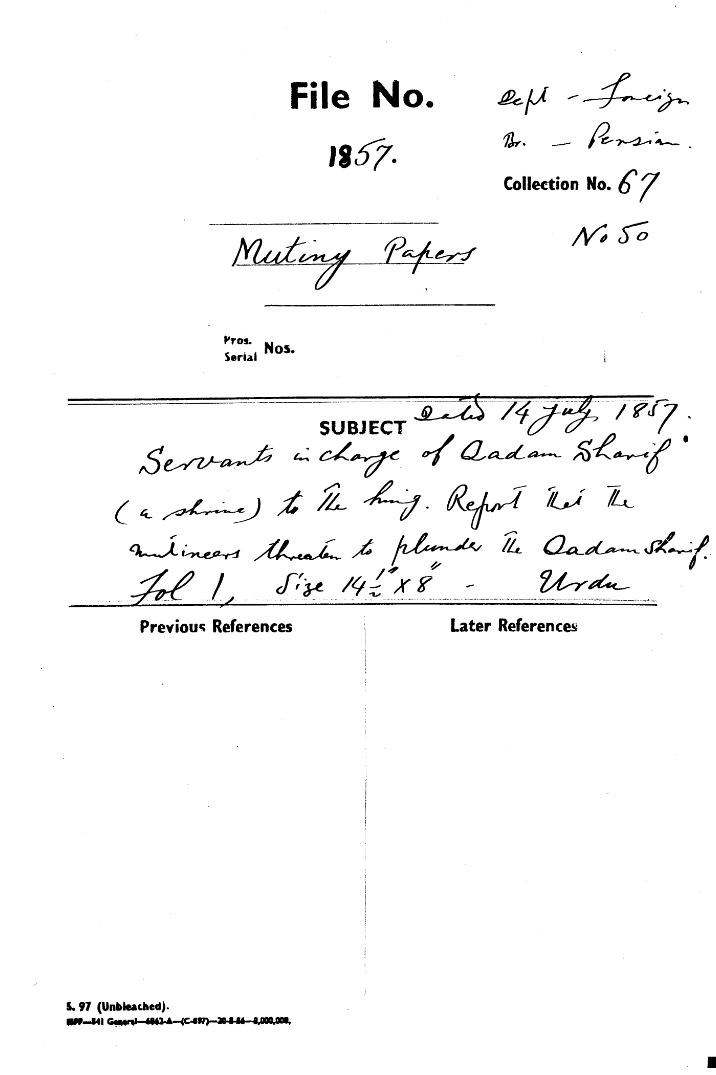 File No.
Dept - Foreign
Br. - Persian.
1857.
Collection No. 67
No 50
Mutiny Papers
Pros.
Serial Nos.
SUBJECT Dated 14 July, 1857.
Servants in charge of Qadam Sharif
(a shrine) to the king. Report that the
mutineers threaten to plunder the Qadam Sharif.
Fol 1, Size 14½" X 8" - Urdu
Previous References
Later References
S. 97 (Unbleached).
General—6862-A—(C-897)—20-8-56—8,000,000.